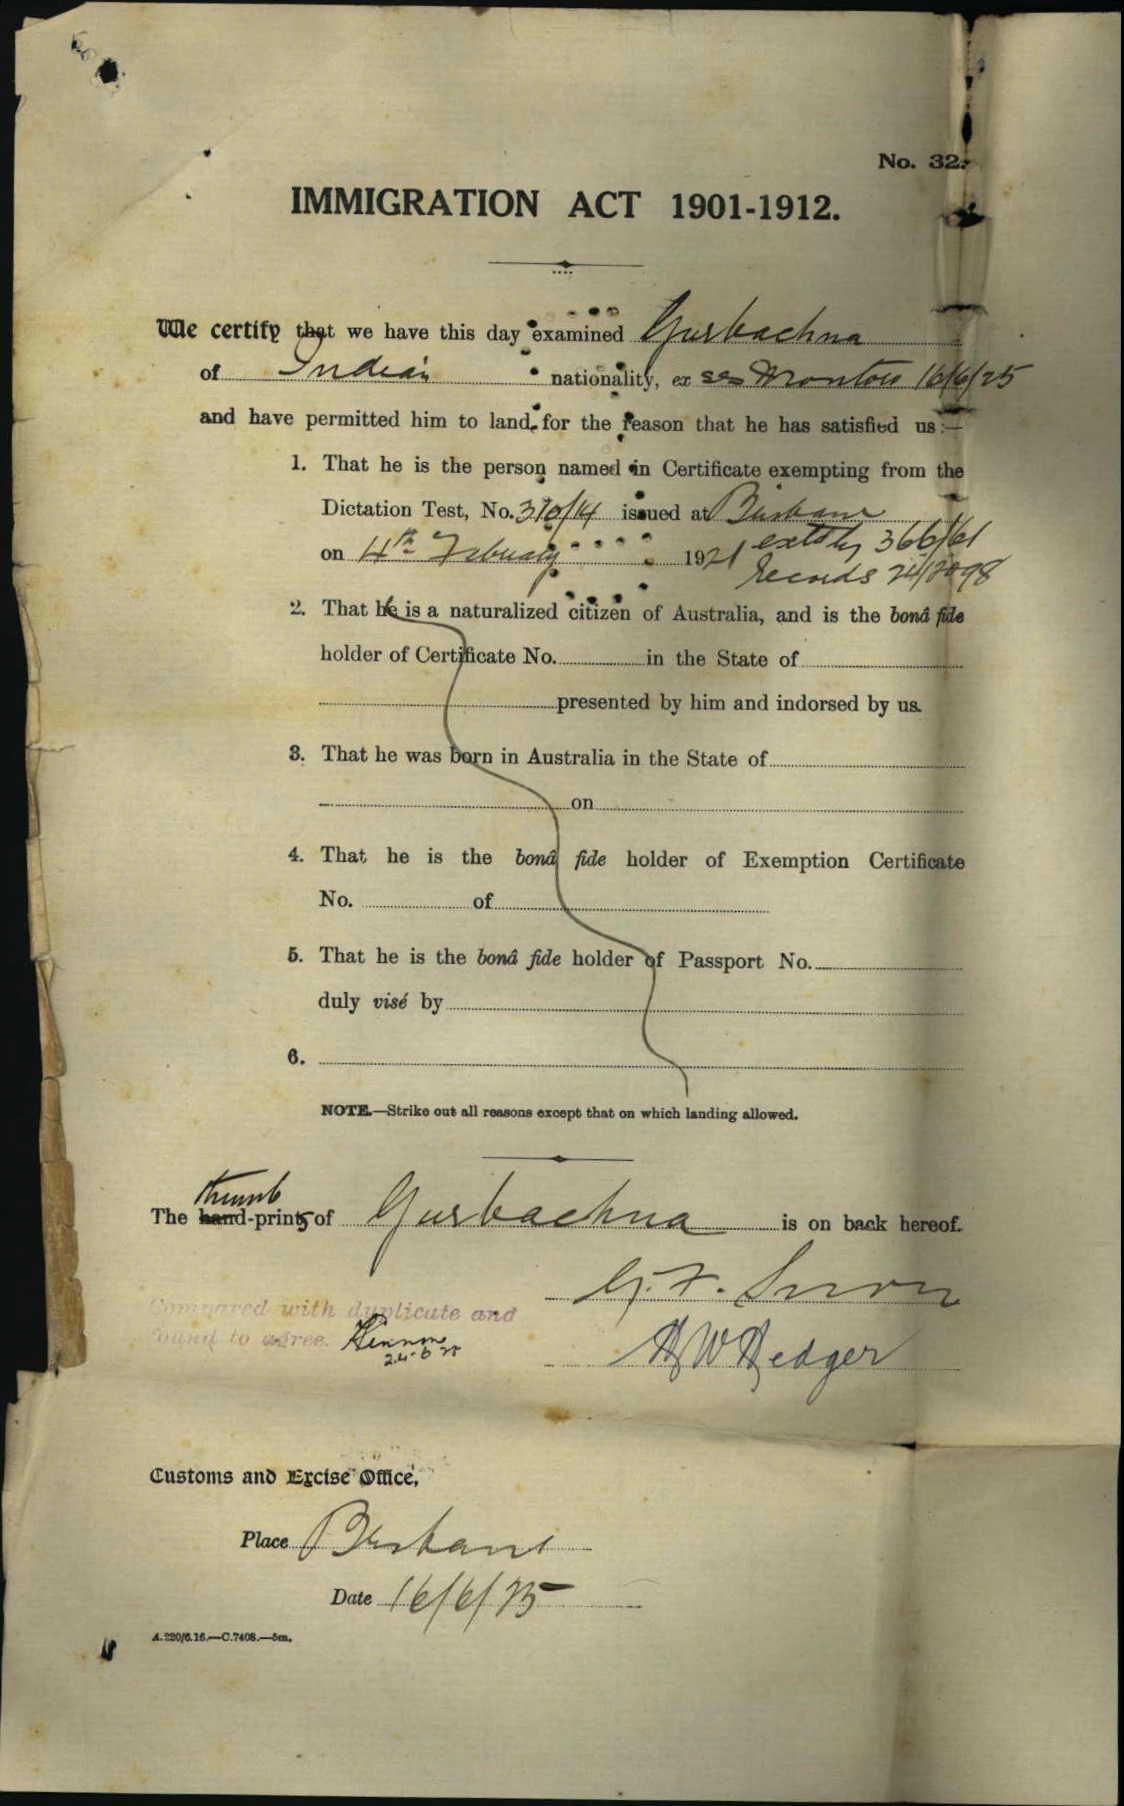 No. 32.
IMMIGRATION ACT 1901-1912.
We certify that we have this day examined Gurbachna
of Indian nationality, ex 16/6/25
and have permitted him to land for the reason that he has satisfied us:—
1. That he is the person named in Certificate exempting from the
Dictation Test, No. 310/14 issued at Brisbane
on 4th February 1921 extd by 366/61
records 24/12098
2. That he is a naturalized citizen of Australia, and is the bonâ fide
holder of Certificate No. in the State of
presented by him and indorsed by us.
3. That he was born in Australia in the State of
on
4. That he is the bonâ fide holder of Exemption Certificate
No. of
5. That he is the bonâ fide holder of Passport No.
duly visé by
6.
NOTE.—Strike out all reasons except that on which landing allowed.
thumb
The hand-prints of Gurbachna is on back hereof.
G. F.
Compared with duplicate and
found to agree.
24-6-25
Hedger
Customs and Excise Office,
Place Brisbane
Date 16/6/25
A.220/6.16.—C.7408.—5m.